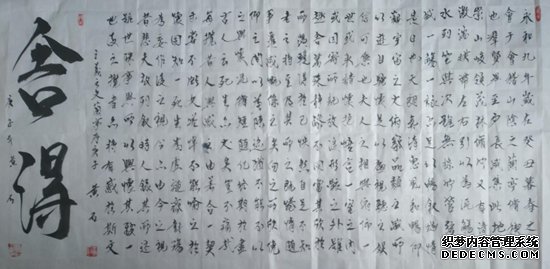 永和九年歲在癸丑暮春之初
會于會稽山陰之蘭亭脩禊事
也群賢畢至少長咸集此地有
崇山峻領茂林脩竹又有清流
激湍映帶左右引以為流觴曲
水列坐其次雖無絲竹管弦之
盛一觴一詠亦足以暢敘幽情
是日也天朗氣清惠風和暢仰
觀宇宙之大俯察品類之盛所
以遊目騁懷足以極視聽之娛
信可樂也夫人之相與俯仰一
世或取諸懷抱悟言一室之內
或因寄所託放浪形骸之外雖
趣舍萬殊靜躁不同當其欣
於所遇暫得於己快然自足不知
老之將至及其所之既惓情隨
事遷感慨係之矣向之所欣俛
仰之間以為陳跡猶不能不以
之興懷況脩短隨化終期於盡
古人云死生亦大矣豈不痛哉
每攬昔人興感之由若合一契
未嘗不臨文嗟悼不能喻之於
懷固知一死生為虛誕齊彭殤
為妄作後之視今亦由今之視
昔悲夫故列敘時人錄其所述
雖世殊事異所以興懷其致一
也後之攬者亦將有感於斯文
王羲之文蘭亭序庚子 黃石
舍得
织梦内容管理系统
DEDECMS.COM